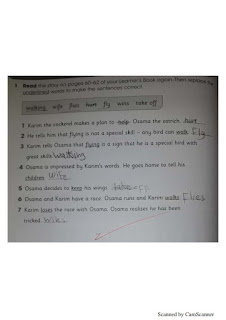 1 Read the play on pages 60-62 of your Learner's Book again. Then, replace the
underlined words to make the sentences correct.
walking wife flies hurt fly wins take off
1 Karim the cockerel makes a plan to help Osama the ostrich. hurt
2 He tells him that flying is not a special skill – any bird can walk. Fly
3 Karim tells Osama that flying is a sign that he is a special bird with
great skills. walking
4 Osama is impressed by Karim's words. He goes home to tell his
children. Wife
5 Osama decides to keep his wings. take off
6 Osama and Karim have a race. Osama runs and Karim walks. Flies
7 Karim loses the race with Osama. Osama realises he has been
tricked. wins
Scanned by CamScanner